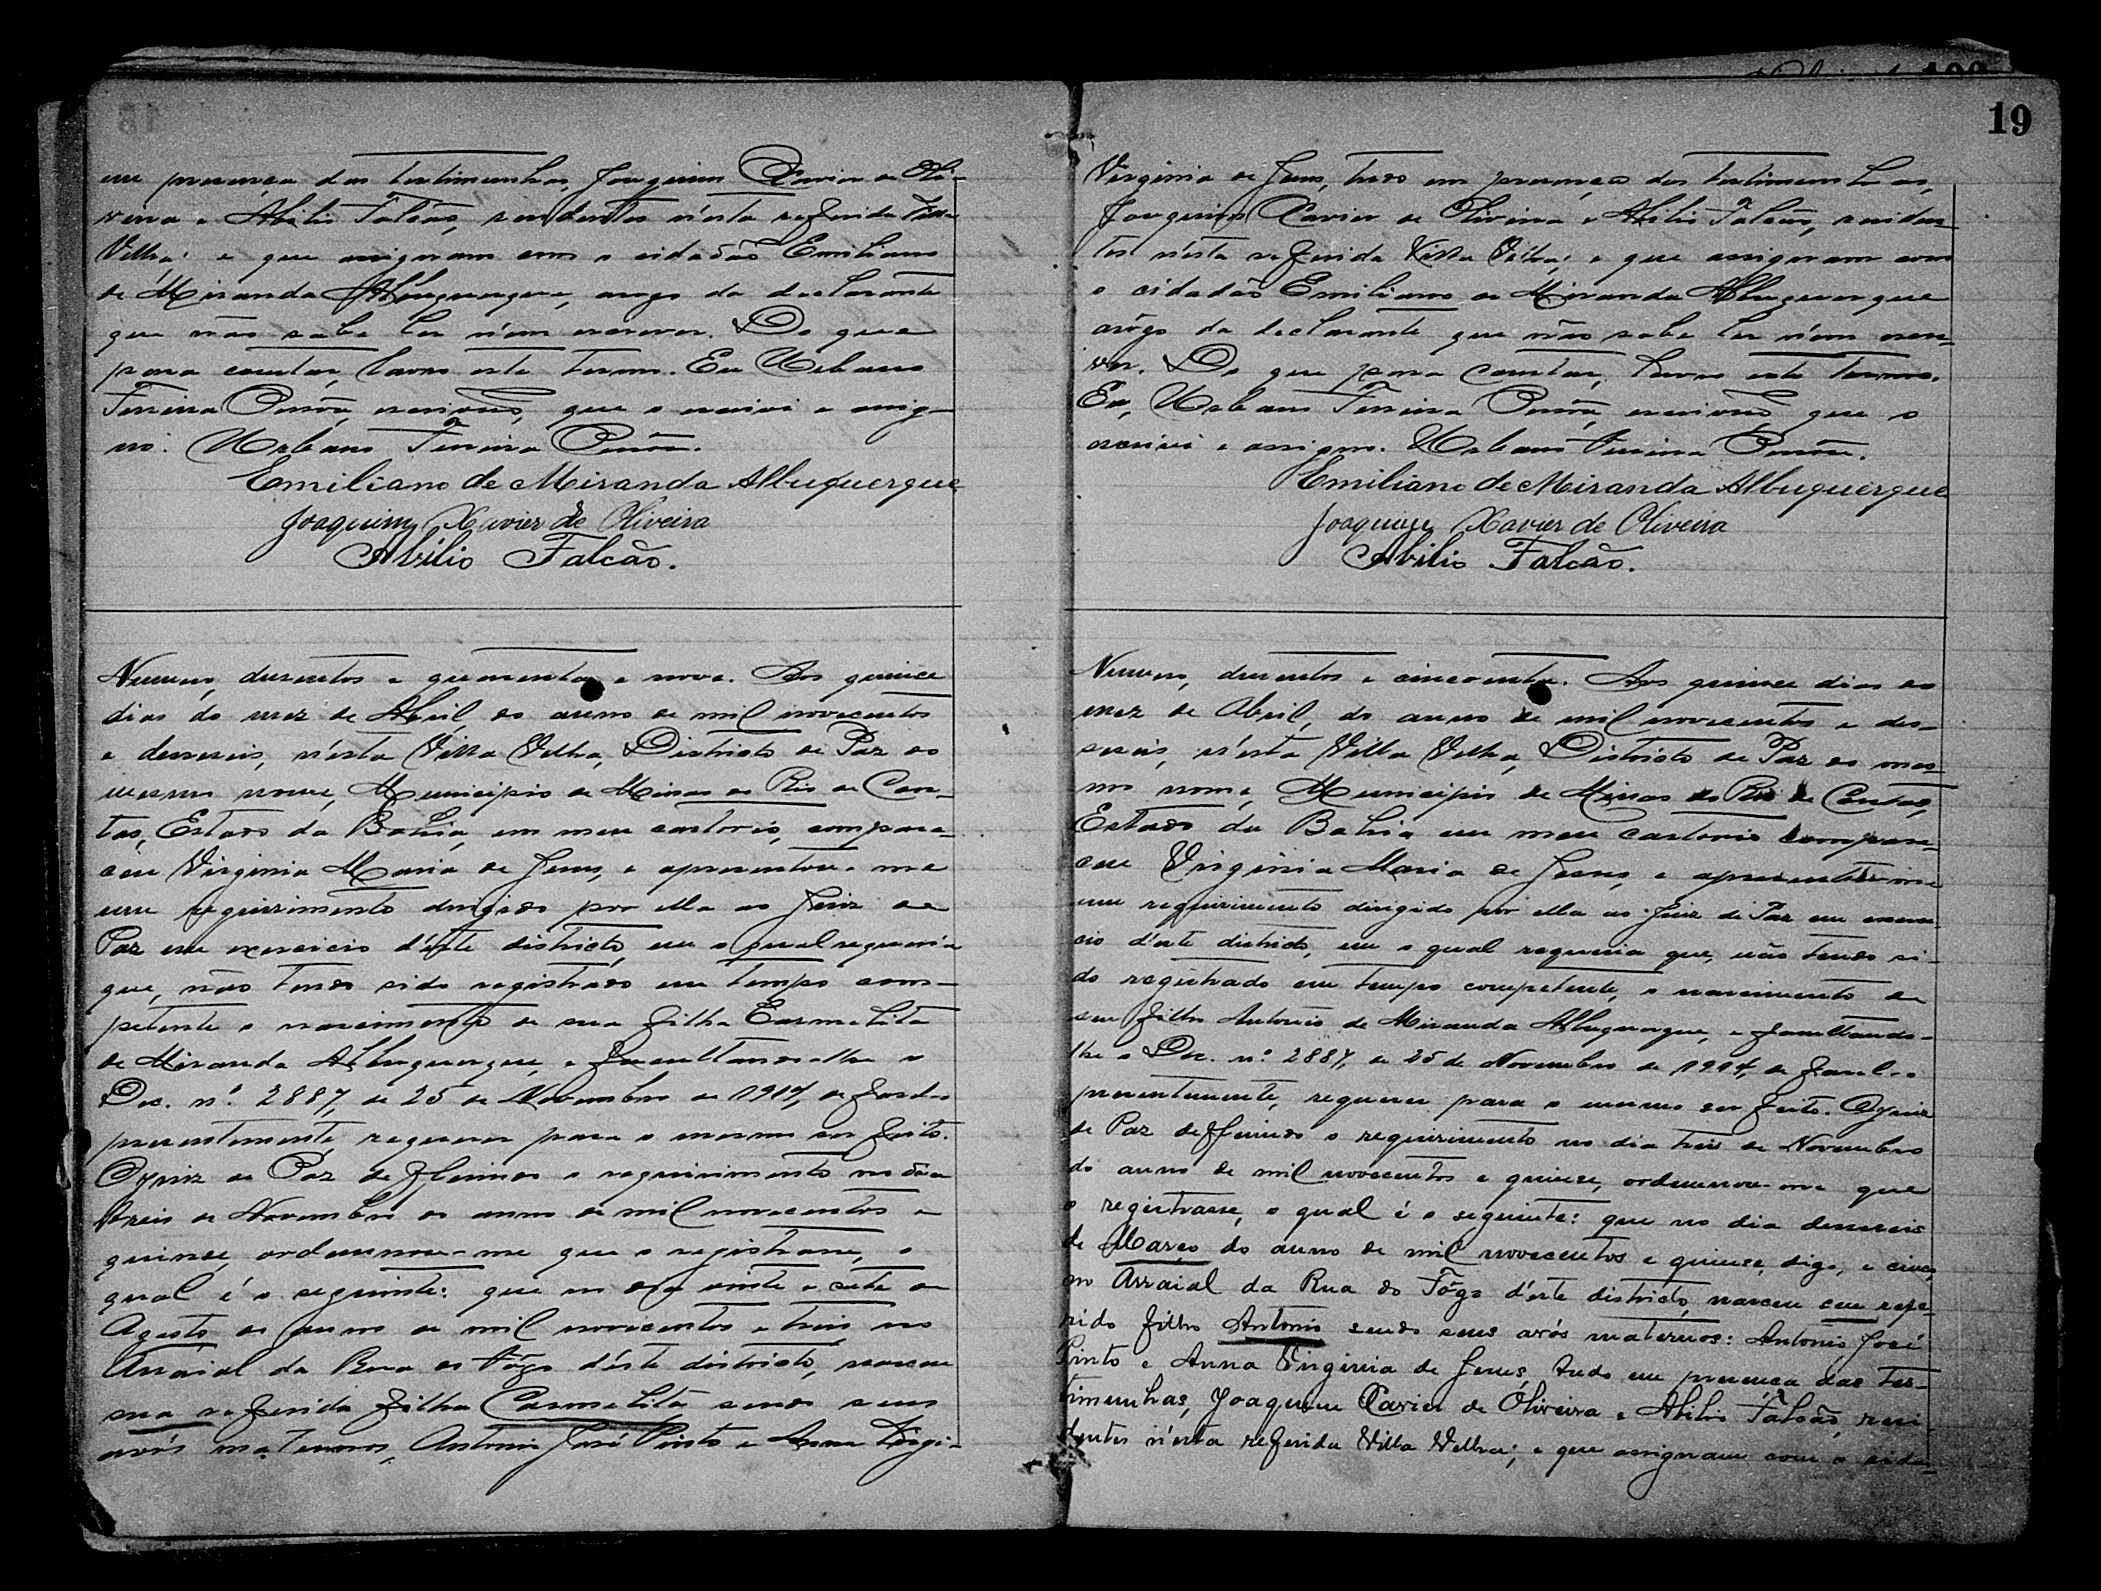 em presença das testimunhas, Joaquim Xavier de Oli-
veira e Abilio Falcão, residentes n'esta referida Villa
Velha; e que assignam com o cidadão Emiliano
de Miranda Albuquerque, arogo da declarante
que não sabe ler n'em escrever. Do que
para constar, lavro este termo. Eu Urbano
Ferreira escrivão, que o escrivi e assig-
no. Urbano Ferreira
Emiliano de Miranda Albuquerque
Joaquim Xavier de Oliveira
Abilio Falcão.
Numero, dusentos e quarenta e nove. Aos quince
dias do mez de Abril, do anno de mil novecentos
e deseseis, n'esta Villa Velha, Districto de Paz do
mesmo nome, Municipio de Minas do Rio de Con-
tas, Estado da Bahia, em meu cartorio, compare-
ceu Virginia Maria de Jesus, e apresentou-me
um requirimento dirigido por ella ao Juiz de
Paz em exercicio d'este districto, em o qual requeria
que, não tendo sido registrado em tempo com-
petente o nascimento de sua filha Carmelita
de Miranda Albuquerque, e facultando-lhe o
Dec. nº. 2887, de 25 de Novembro de 1914, de fasel-o
presentemente, requerer para o mesmo ser feito.
O Juiz de Paz defferindo o requirimento no dia
treis de Novembro do anno de mil novecentos e
quinse, ordennou-me que o registrasse, o
qual é o seguinte: que no dia vinte e sete de
Agosto do anno de mil novecentos e treis, no
Arraial da Rua do Fôgo d'este districto, nasceu
sua referida filha Carmelita sendo seus
avós maternos, Antonio José Pinto e Anna Virgi-
19
Virginia de Jesus, tudo em presença das testimunhas,
Joaquim Xavier de Oliveira e Abilio Falcão, residen-
tes n'esta referida Villa Velha; e que assignam com
o cidadão Emiliano de Miranda Albuquerque
arôgo da declarante que não sabe ler n'em escre-
ver. Do que para constar, lavro este termo.
Eu, Urbano Ferreira escrivão, que o
escrivi e assigno. Urbano Ferreira
Emiliano de Miranda Albuquerque
Joaquim Xavier de Oliveira
Abilio Falcão.
Numero, dusentos e cincoenta. Aos quinse dias do
mez de Abril, do anno de mil novecentos e des-
seseis, n'esta Villa Velha, Districto de Paz do mes-
mo nome, Municipio de Minas do Rio de Contas,
Estado da Bahia em meu cartorio compare-
ceu Virginia Maria de Jesus, e apresentou-me
um requirimento dirigido por ella ao Juiz de Paz em exerci-
cio d'este districto, em o qual requeria que, não tendo si-
do registrado em tempo competente, o nascimento de
seu filho Antonio de Miranda Albuquerque, e facultando-
lhe o Dec. nº. 2887, de 25 de Novembro de 1914, de fasel-o
presentemente, requerer para o mesmo ser feito. O Juiz
de Paz defferindo o requirimento no dia treis de Novembro
do anno de mil novecentos e quinse, ordennou-me que
o registrasse, o qual é o seguinte: que no dia deseseis
de Março do anno de mil novecentos e quinse, digo, e cinco,
no Arraial da Rua do Fôgo d'este districto, nasceu seu refe-
rido filho Antonio sendo seus avós maternos: Antonio José
Pinto e Anna Virginia de Jesus, tudo em presença das tes-
timunhas, Joaquim Xavier de Oliveira e Abilio Falcão, resi-
dentes n'esta referida Villa Velha; e que assignam com o cida-